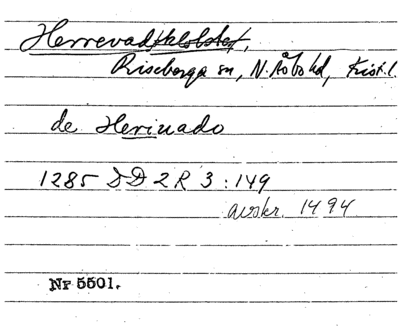 Herrevadskloster,
Riseberga sn, N. Åsbo hd, Krist. l.
de Heriuado
1285 DD 2 R 3 : 149
avskr. 1494
Nr 5501.